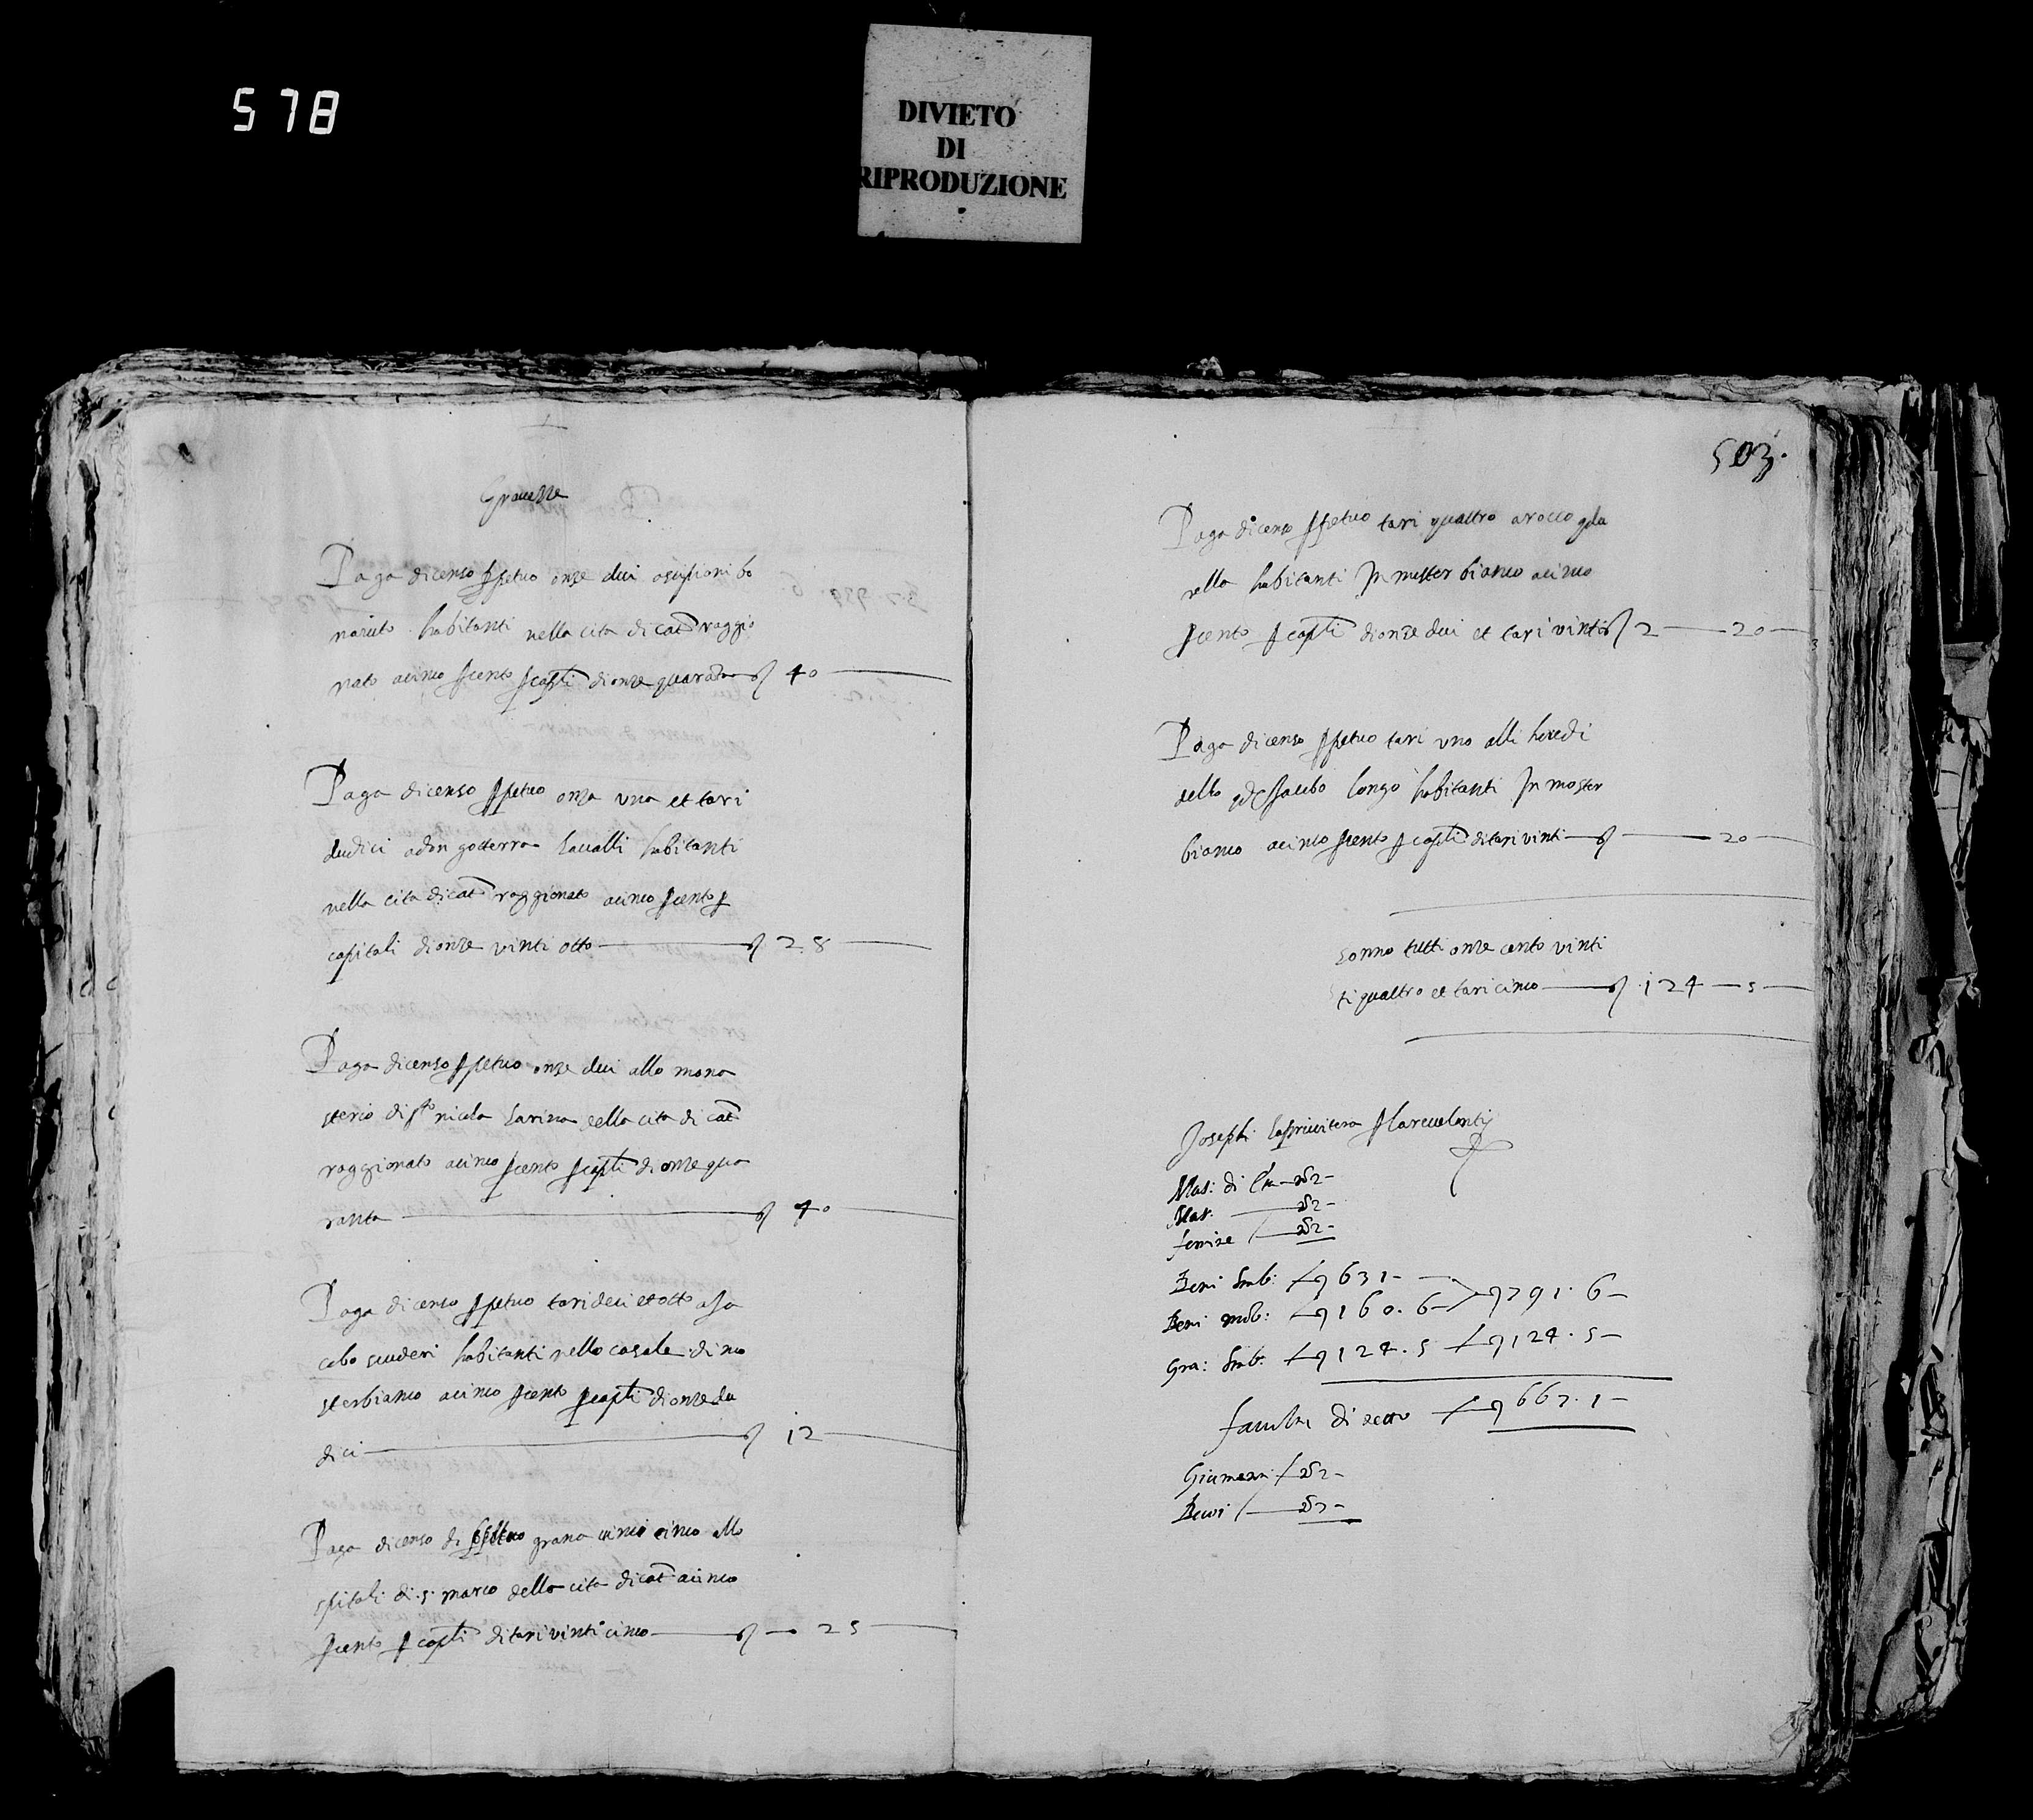 578
DIVIETO
DI
RIPRODUZIONE
Gravezze
Paga di censo ppetuo onze dui a scipioni bo
naiuto habitanti nella cita di cata raggio
nato a cinco p cento p capli di onze quaranta 40
Paga di censo ppetuo onza una et tari
dudici a don gotterra habitanti
nella cita di cata raggionato a cinco p cento p
capitali di onze vinti otto 28
Paga di censo ppetuo onze dui allo mona
sterio di sto nicola larina della cita di cata
raggionato a cinco p cento p capli di onze qua
ranta 40
Paga di censo ppetuo tari deci et otto a Ja
cobo scuderi habitanti nello casale di mo
sterbianco a cinco p cento p capli di onze du
dici 12
Paga di censo di ppetuo grana vinti cinco allo
spitali di s. marco della cita di cata a cinco
p cento p capli di tari vinti cinco 25
503.
Paga di censo ppetuo tari quattro a rocco
rella habitanti In muster bianco a cinco
p cento p capli di onze dui et tari vinti 2 20
Paga di censo ppetuo tari uno alli heredi
dello qd Jacubo longo habitanti In moster
bianco a cinco p cento p capli di tari vinti 20
sonno tutti onze cento vinti
ti quattro et tari cinco 124 5
Joseph
Mas: di
Mas.
femine
Beni stab: 631 791. 6
Beni mob: 160. 6
Gra: stab: 124. 5 124. 5
faculta di netto 667. 1
Giumenti
Bovi